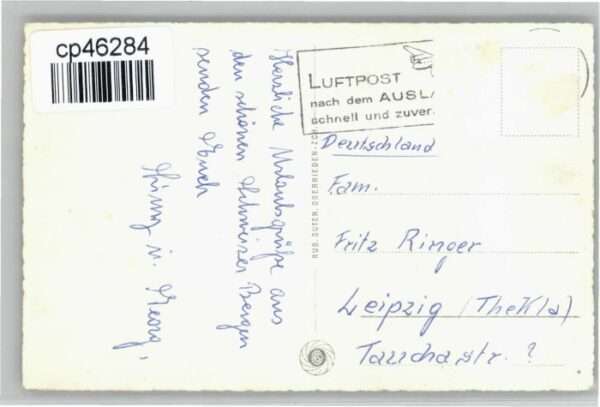 cp46284
Herzliche Urlaubsgrüße aus
den schönen Schweizer Bergen
senden Euch
u. Georg,
LUFTPOST
nach dem AUSL
schnell und zuver
RUD. SUTER, OBERRIEDEN-ZCH.
Deutschland
Fam.
Fritz Ringer
Leipzig (Thekla)
Tauchastr. ?